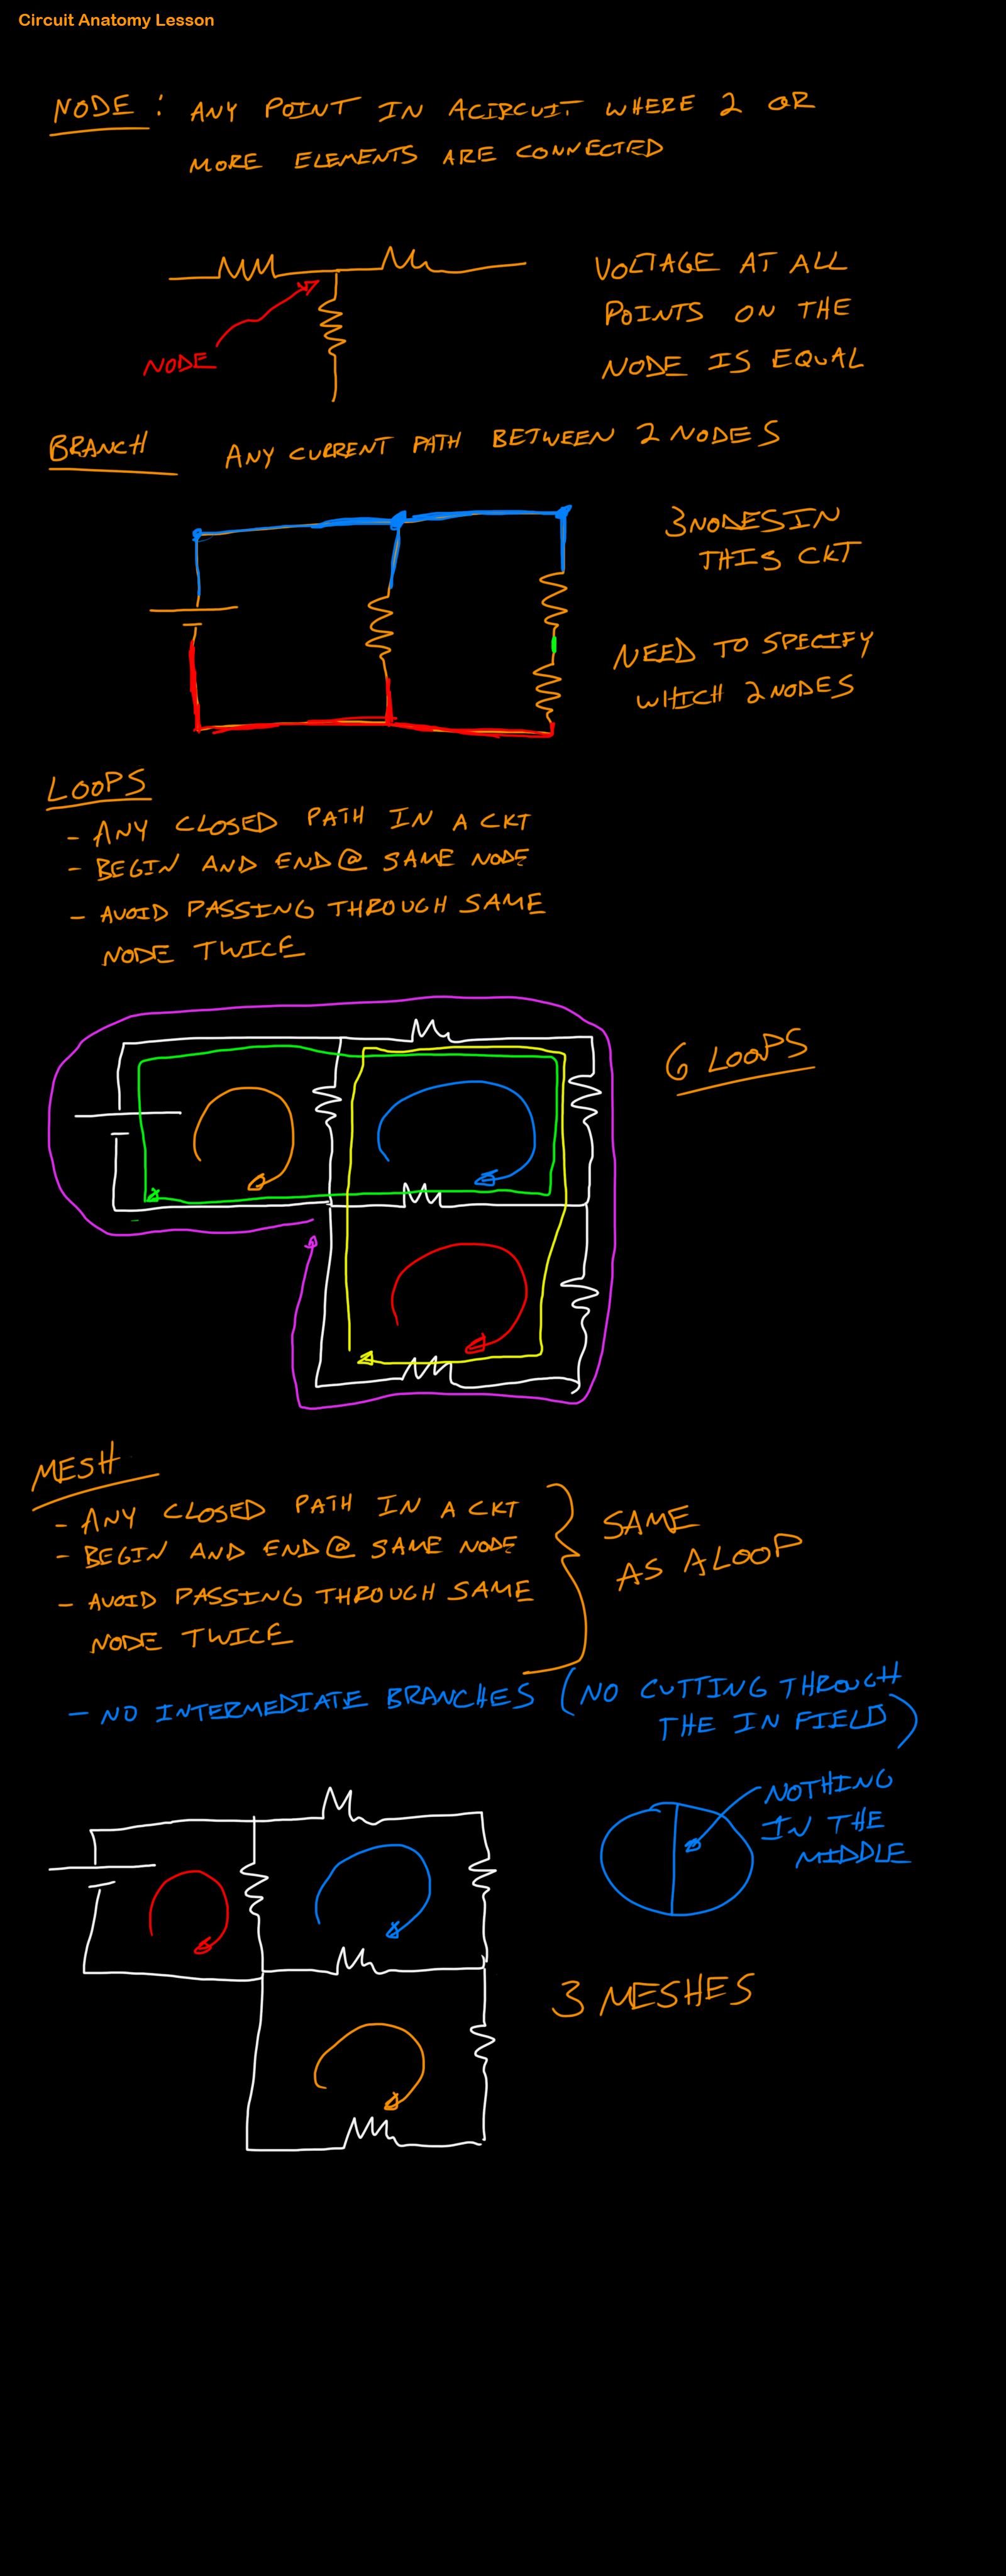 Circuit Anatomy Lesson
NODE : ANY POINT IN ACIRCUIT WHERE 2 OR
MORE ELEMENTS ARE CONNECTED
VOLTAGE AT ALL
POINTS ON THE
NODE IS EQUAL
NODE
BRANCH ANY CURRENT PATH BETWEEN 2 NODES
3 NODES IN
THIS CKT
NEED TO SPECIFY
WHICH 2 NODES
LOOPS
- ANY CLOSED PATH IN A CKT
- BEGIN AND END @ SAME NODE
- AVOID PASSING THROUGH SAME
NODE TWICE
6 LOOPS
MESH
- ANY CLOSED PATH IN A CKT
- BEGIN AND END @ SAME NODE
- AVOID PASSING THROUGH SAME
NODE TWICE
SAME
AS A LOOP
- NO INTERMEDIATE BRANCHES (NO CUTTING THROUGH
THE IN FIELD)
NOTHING
IN THE
MIDDLE
3 MESHES